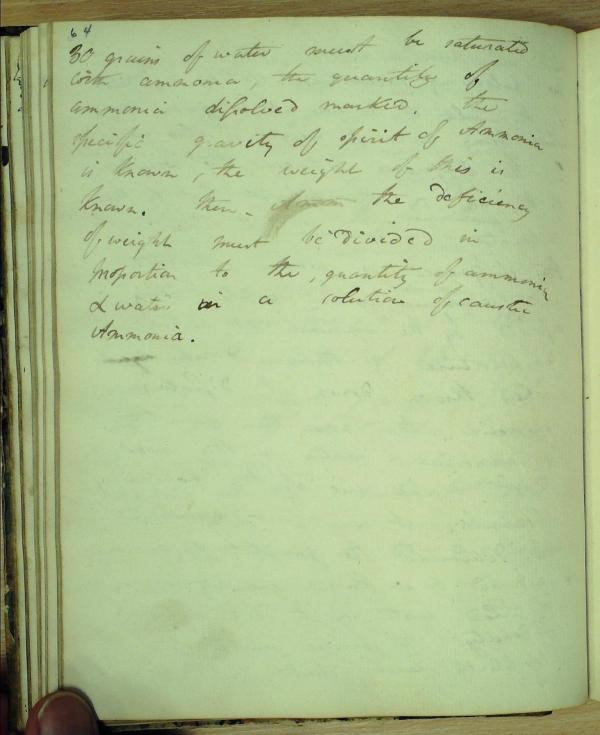 64
30 grains of water must be saturated
with ammonia, the quantity of
ammonia dissolved marked. the
specific gravity of spirit of Ammonia
is known, the weight of this is
known. then the deficiency
of weight must be divided in
proportion to the, quantity of ammonia
& water in a solution of caustic
Ammonia.